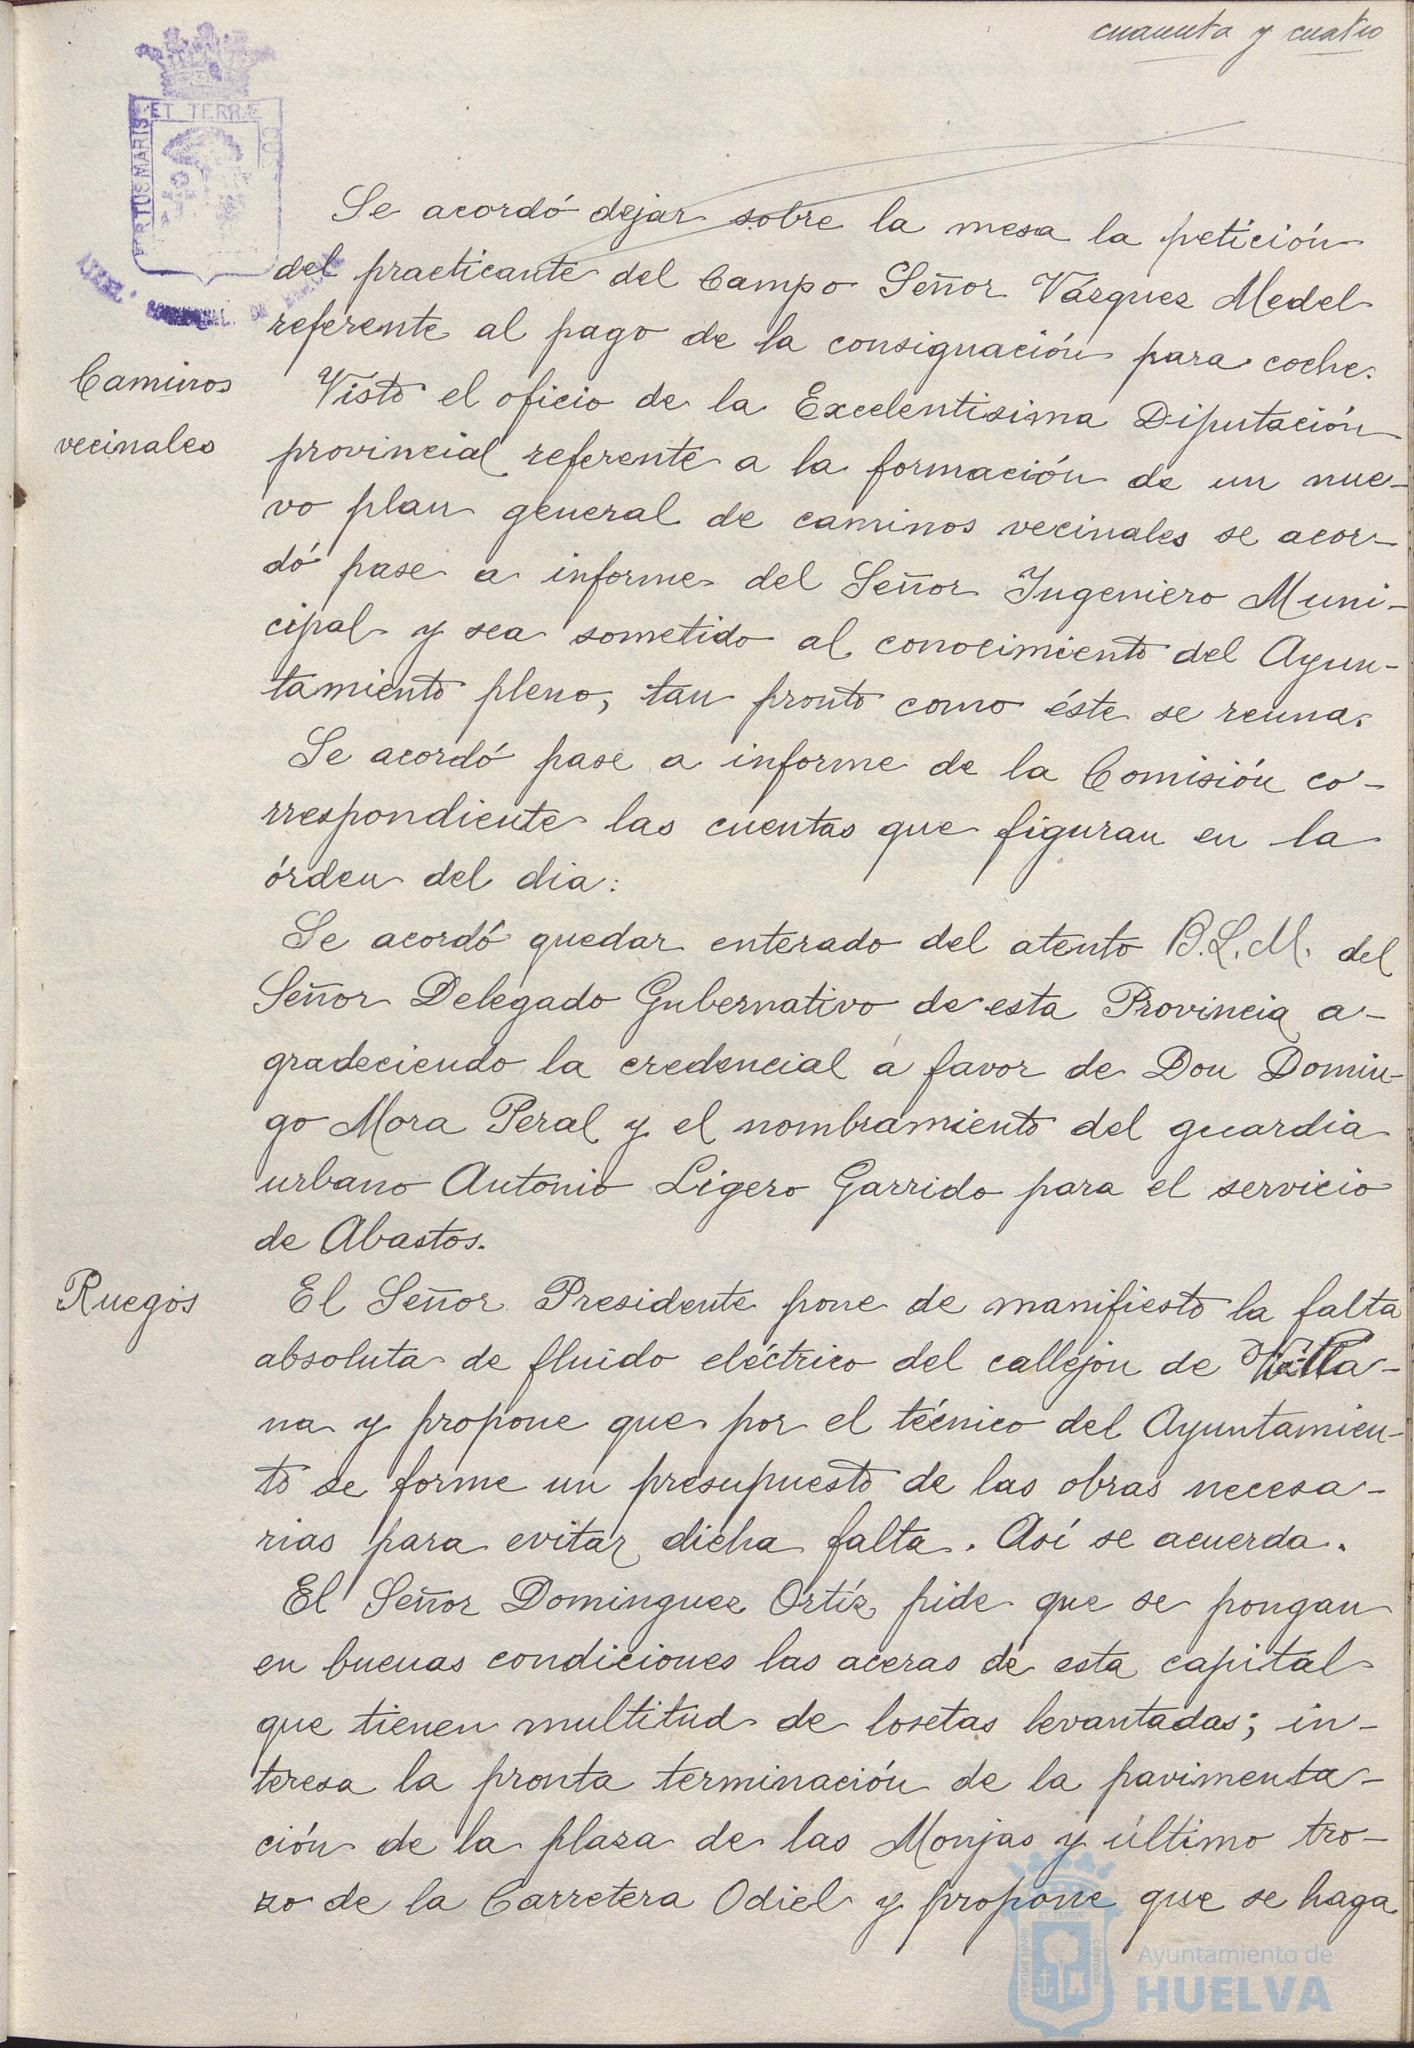 cuarenta y cuatro
PORTUS MARIS ET TERRÆ CUS
Se acordó dejar sobre la mesa la petición
del practicante del Campo Señor Vázquez Medel
referente al pago de la consignación para coche.
Caminos
vecinales
Visto el oficio de la Excelentisima Diputación
provincial referente a la formación de un nue-
vo plan general de caminos vecinales se acor-
dó pase a informe del Señor Ingeniero Muni-
cipal y sea sometido al conocimiento del Ayun-
tamiento pleno, tan pronto como éste se reuna.
Se acordó pase a informe de la Comisión co-
rrespondiente las cuentas que figuran en la
órden del dia.
Se acordó quedar enterado del atento B.L.M. del
Señor Delegado Gubernativo de esta Provincia a-
gradeciendo la credencial á favor de Don Domin-
go Mora Peral y el nombramiento del guardia
urbano Antonio Ligero Garrido para el servicio
de Abastos.
Ruegos
El Señor Presidente pone de manifiesto la falta
absoluta de fluido eléctrico del callejon de
na y propone que por el técnico del Ayuntamien-
to se forme un presupuesto de las obras necesa-
rias para evitar dicha falta. Así se acuerda.
El Señor Dominguez Ortíz pide que se pongan
en buenas condiciones las aceras de esta capital
que tienen multitud de losetas levantadas; in-
teresa la pronta terminación de la pavimenta-
ción de la plaza de las Monjas y último tro-
zo de la Carretera Odiel y propone que se haga
Ayuntamiento de
HUELVA